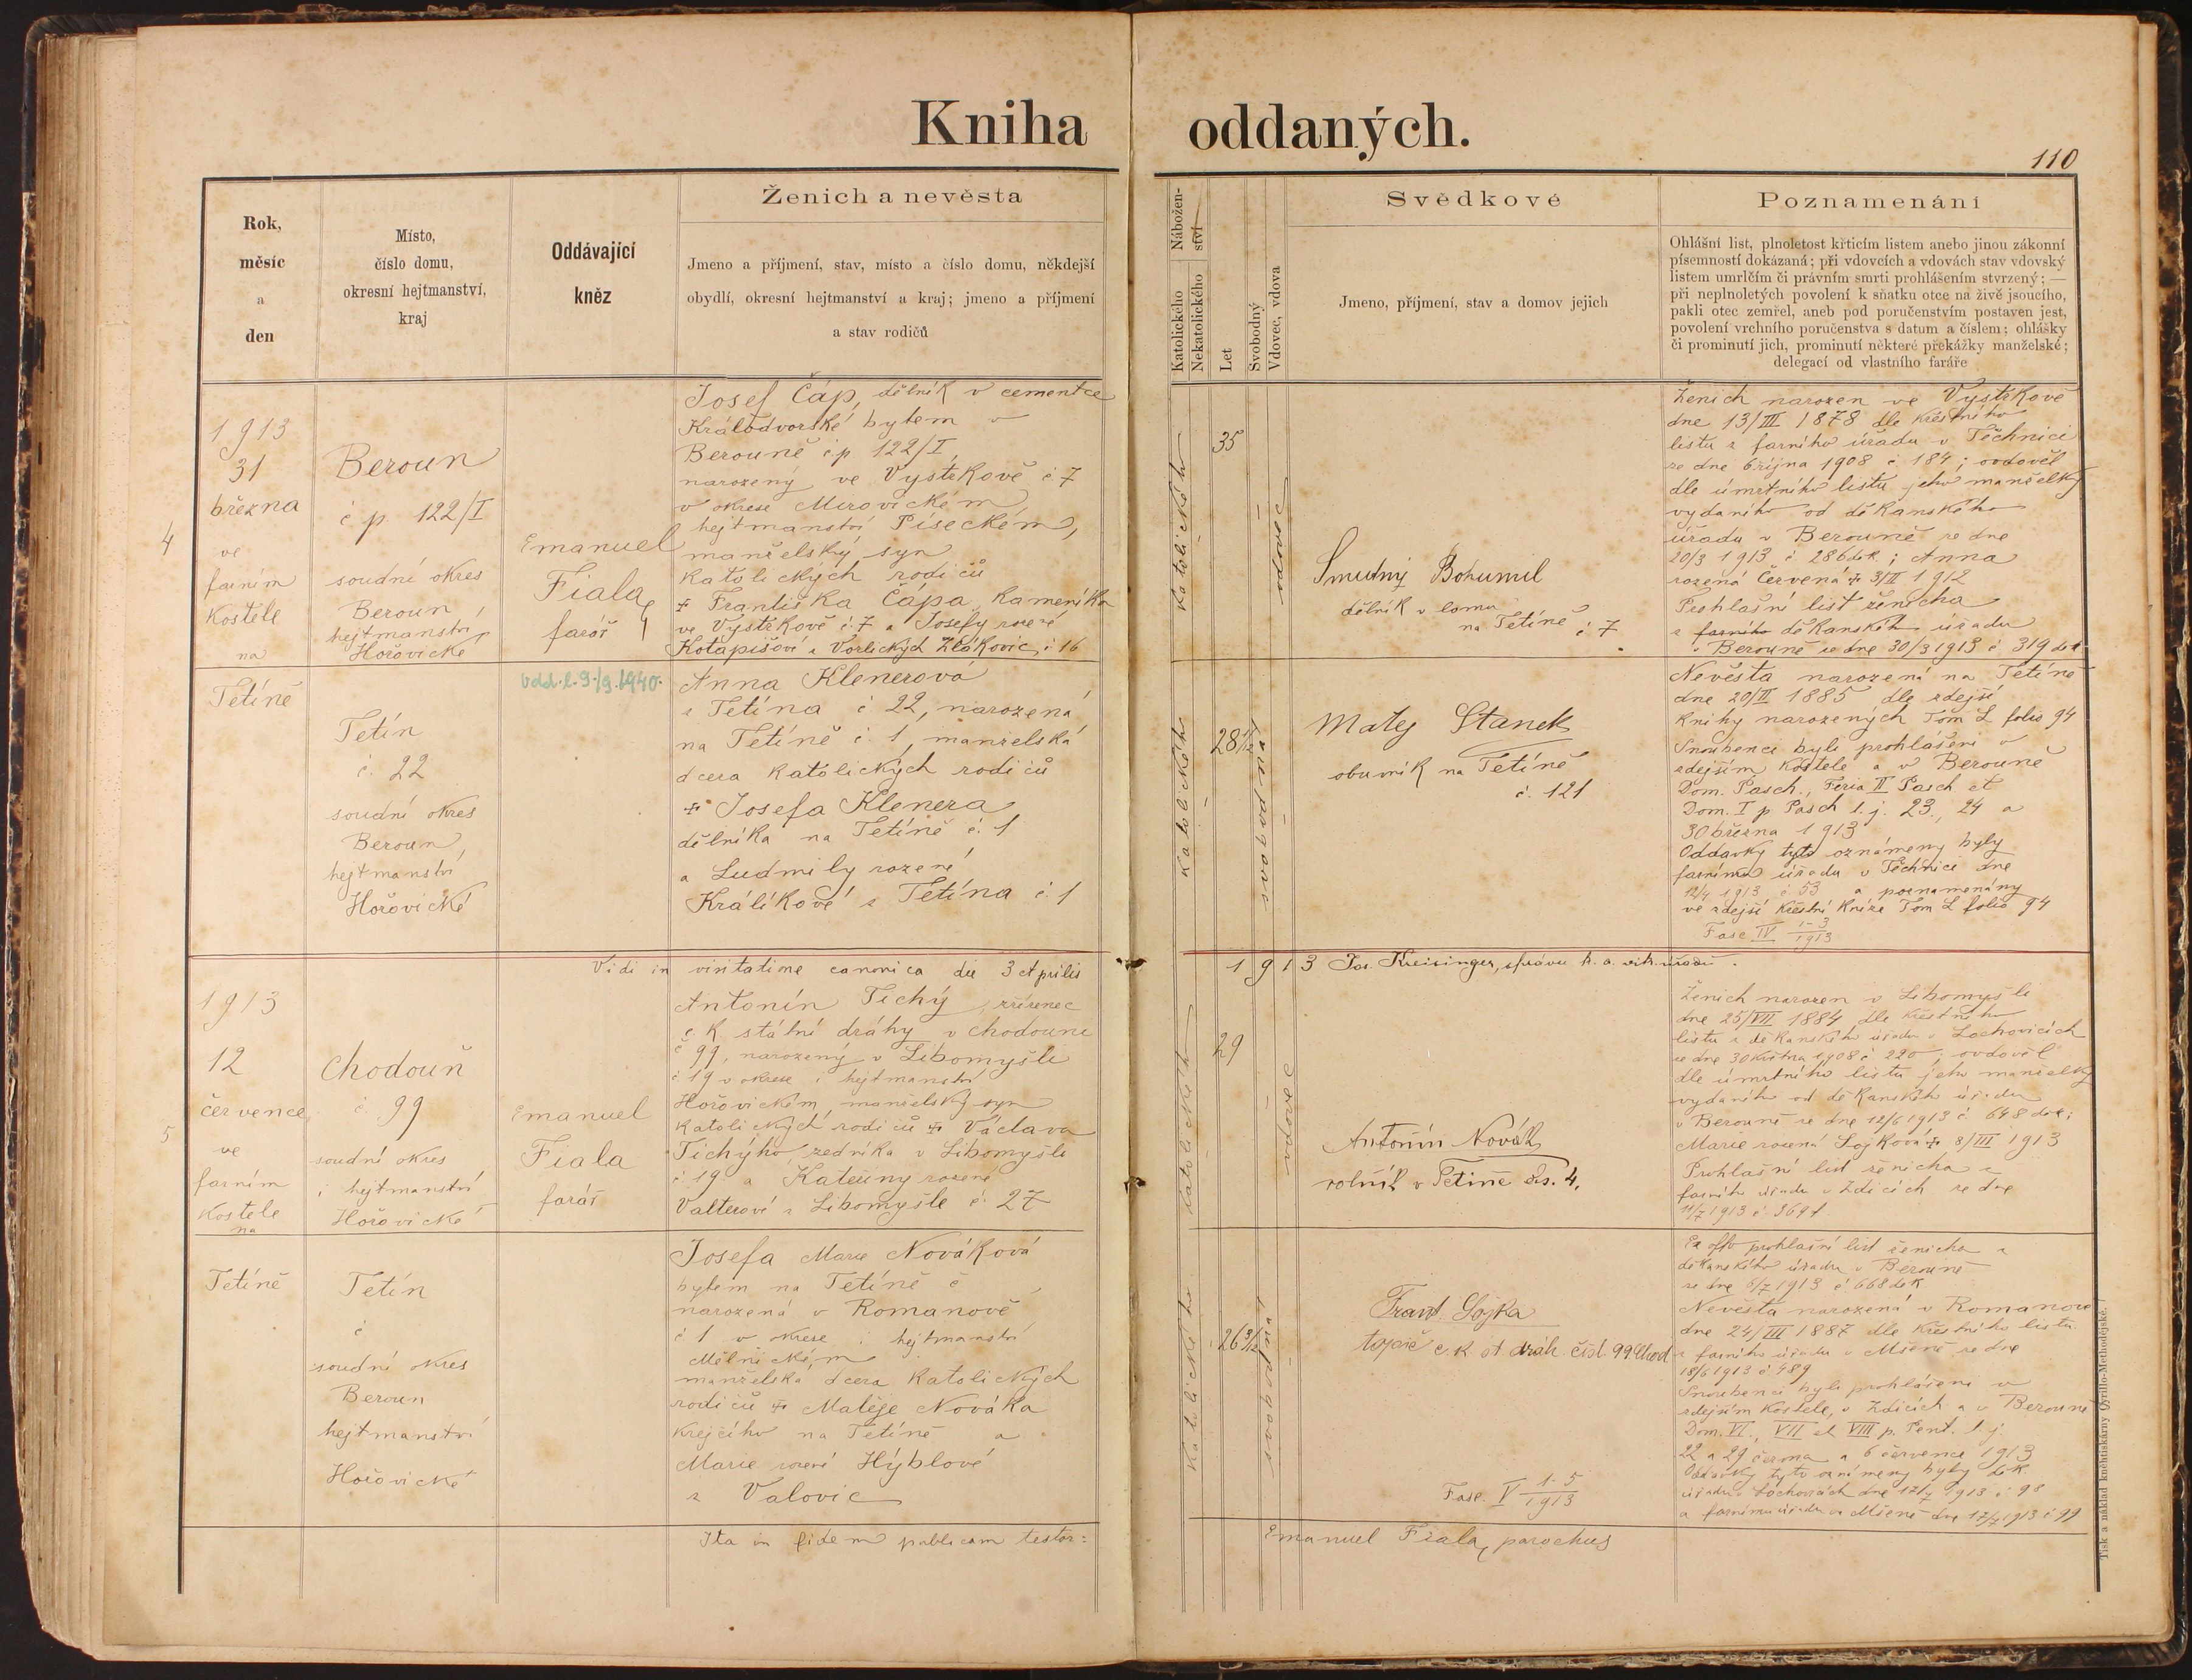 Kniha oddaných.
110
Rok,
měsíc
a
den
Místo,
číslo domu,
okresní hejtmanství,
kraj
Oddávající
kněz
Ženich a nevěsta
Jmeno a příjmení, stav, místo a číslo domu, někdejší
obydlí, okresní hejtmanství a kraj; jmeno a příjmení
a stav rodičů
Nábožen-
ství
Katolického
Nekatolického
Let
Svobodný
Vdovec, vdova
Svědkové
Jmeno, příjmení, stav a domov jejich
Poznamenání
Ohlášní list, plnoletost křticím listem anebo jinou zákonní
písemností dokázaná; při vdovcích a vdovách stav vdovský
listem umrlčím či právním smrti prohlášením stvrzený; —
při neplnoletých povolení k sňatku otce na živě jsoucího,
pakli otec zemřel, aneb pod poručenstvím postaven jest,
povolení vrchního poručenstva s datum a číslem; ohlášky
či prominutí jich, prominutí některé překážky manželské;
delegací od vlastního faráře
4
1913
31
března
ve
farním
Kostele
na
Tetíně
Beroun
č p. 122/I
soudní okres
Beroun,
hejtmanství
Hořovické
Emanuel
Fiala,
farář
Josef Čáp, dělník v cementce
Králodvorské bytem v
Berouně čp 122/I,
narozený ve Vystrkově č 7
v okrese Mirovickém,
hejtmanství Píseckém,
manželský syn
Katolických rodičů
✠ Františka Čápa kameníka
ve Vystrkově č. 7 a Josefy rozené
Kotapišovi z Vorlických Zlákovic č 16
katolického
35
vdovec
Smudný Bohumil
dělník v lomu
na Tetíně č 7
Ženich narozen ve Vystrkově
dne 13/III 1878 dle křestního
listu z farního úřadu v Těchnici
ze dne 6 října 1908 č 184; ovdověl
dle úmrtního listu jeho manželky
vydaného od děkanského
úřadu v Berouně ze dne
20/3 1913 č 286 dek; Anna
rozená Červená ✠ 3/II 1912
Prohlašní list ženicha
z farního děkanského úřadu
v Berouně ze dne 30/3 1913 č 319 dek
Tetín
č. 22
soudní okres
Beroun,
hejtmanství
Hořovické
Odd. l. 9./9. 1940.
Anna Klenerová
z Tetína č 22, narozená
na Tetíně č. 1, manželská
dcera katolických rodičů
✠ Josefa Klenera
dělníka na Tetíně č. 1
a Ludmily rozené
Králíkové z Tetína č. 1
katolického
28 1/12
svobodná
Matěj Stanek
obuvník na Tetíně
č. 121
Nevěsta narozená na Tetíně
dne 20/II 1885 dle zdejší
knihy narozených Tom L folio 94
Snoubenci byli prohlášeni v
zdejším kostele a v Berouně
Dom. Pasch., Feria II Pasch et
Dom. I p Pasch t. j. 23., 24 a
30 března 1913
Oddavky tyto oznámeny byly
farnímu úřadu v Těchnici dne
12/4 1913 č 53 a poznamenány
ve zdejší křestní knize Tom L folio 94
Fasc IV 1-3/1913
Vidi in visitatione canonica die 3 Aprilis 1913 Jos. Kreisinger, správce k. a. vik. úřadu.
5
1913
12
července
ve
farním
Kostele
na
Tetíně
Chodouň
č 99
soudní okres
i hejtmanství
Hořovické
Emanuel
Fiala
farář
Antonín Tichý, zřízenec
c K státní dráhy v Chodouni
č 99, narozený v Libomyšli
č 19 v okrese i hejtmanství
Hořovickém, manželský syn
Katolických rodičů ✠ Václava
Tichýho, zedníka v Libomyšli
č 19 a Kateřiny rozené
Valterové z Libomyšle č. 27
katolického
29
vdovec
Antonín Novák
rolník v Tetíně čís. 4.
Ženich narozen v Libomyšli
dne 25/VII 1884 dle křestního
listu z děkanského úřadu v Lochovicích
ze dne 30 května 1908 č 220; ovdověl
dle úmrtního listu jeho manželky
vydaného od děkanského úřadu
v Berouně ze dne 12/6 1913 č 648 dek;
Marie rozená Lojková ✠ 8/III 1913
Prohlašní list ženicha z
farního úřadu v Zdicích ze dne
11/7 1913 č. 369 f.
Tetín
č
soudní okres
Beroun
hejtmanství
Hořovické
Josefa Marie Nováková
bytem na Tetíně č ,
narozená v Romanově
č 1 v okrese i hejtmanství
Mělnickém
manželská dcera katolických
rodičů ✠ Matěje Nováka
krejčího na Tetíně a
Marie rozené Hýblové
z Valovic
katolického
26 3/12
svobodná
Frant Lojka
topič c. k. st. dráh. čísl. 99 Chod
Fasc. V 1-5/1913
Ex offo prohlašní list ženicha z
děkanského úřadu v Berouně
ze dne 6/7 1913 č 668 dek
Nevěsta narozená v Romanově
dne 24/III 1887 dle křestního listu
z farního úřadu v Mšeně ze dne
18/6 1913 č 489
Snoubenci byli prohlášeni v
zdejším kostele, v Zdicích a v Berouně
Dom. VI., VII et VIII p. Pent. t. j.
22 a 29 června a 6 července 1913
Oddavky tyto oznámeny byly dek.
úřadu v Lochovicích dne 17/7 1913 č 98
a farnímu úřadu ve Mšeně dne 17/7 1913 č 99
Ita in fidem publicam testor: Emanuel Fiala, parochus
Tisk a náklad knihtiskárny Cyrillo-Methodějské.